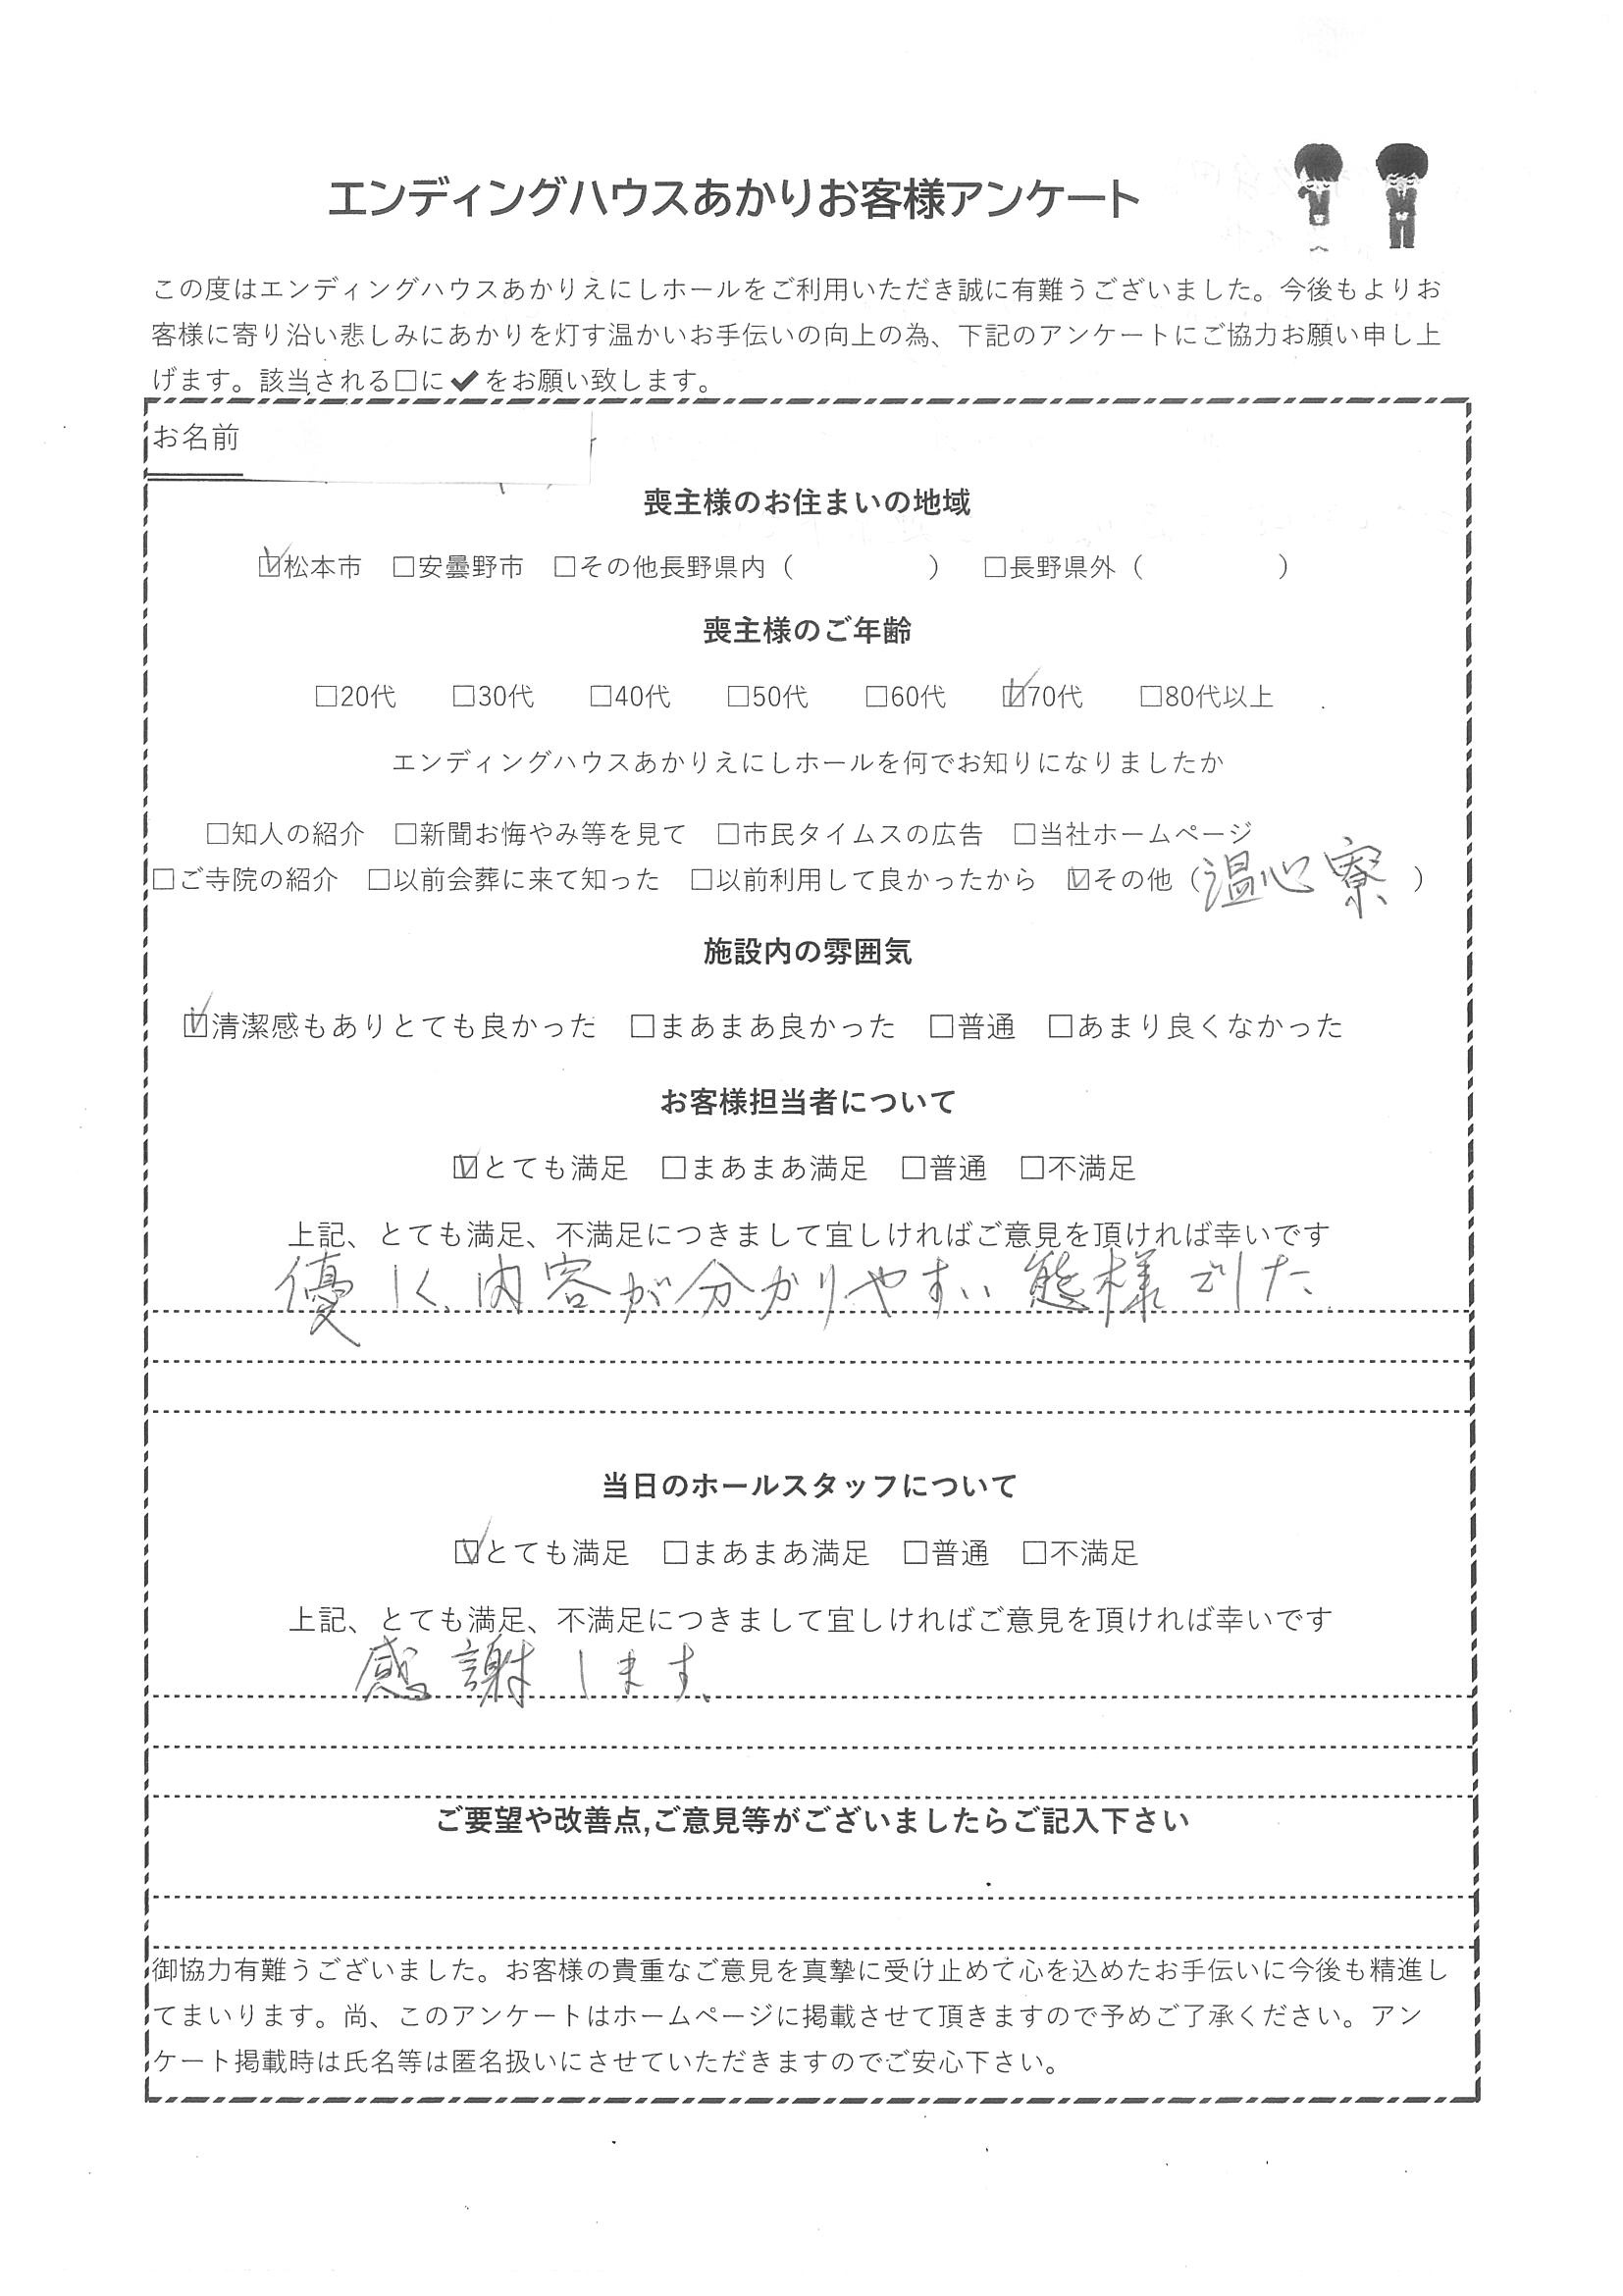 エンディングハウスあかりお客様アンケート
この度はエンディングハウスあかりえにしホールをご利用いただき誠に有難うございました。今後もよりお
客様に寄り沿い悲しみにあかりを灯す温かいお手伝いの向上の為、下記のアンケートにご協力お願い申し上
げます。該当される□に✔をお願い致します。
お名前
喪主様のお住まいの地域
☑松本市 □安曇野市 □その他長野県内（ ） □長野県外（ ）
喪主様のご年齢
□20代 □30代 □40代 □50代 □60代 ☑70代 □80代以上
エンディングハウスあかりえにしホールを何でお知りになりましたか
□知人の紹介 □新聞お悔やみ等を見て □市民タイムスの広告 □当社ホームページ
□ご寺院の紹介 □以前会葬に来て知った □以前利用して良かったから ☑その他（温心寮）
施設内の雰囲気
☑清潔感もありとても良かった □まあまあ良かった □普通 □あまり良くなかった
お客様担当者について
☑とても満足 □まあまあ満足 □普通 □不満足
上記、とても満足、不満足につきまして宜しければご意見を頂ければ幸いです
優しく、内容が分かりやすい態様でした
当日のホールスタッフについて
☑とても満足 □まあまあ満足 □普通 □不満足
上記、とても満足、不満足につきまして宜しければご意見を頂ければ幸いです
感謝します、
ご要望や改善点,ご意見等がございましたらご記入下さい
御協力有難うございました。お客様の貴重なご意見を真摯に受け止めて心を込めたお手伝いに今後も精進し
てまいります。尚、このアンケートはホームページに掲載させて頂きますので予めご了承ください。アン
ケート掲載時は氏名等は匿名扱いにさせていただきますのでご安心下さい。